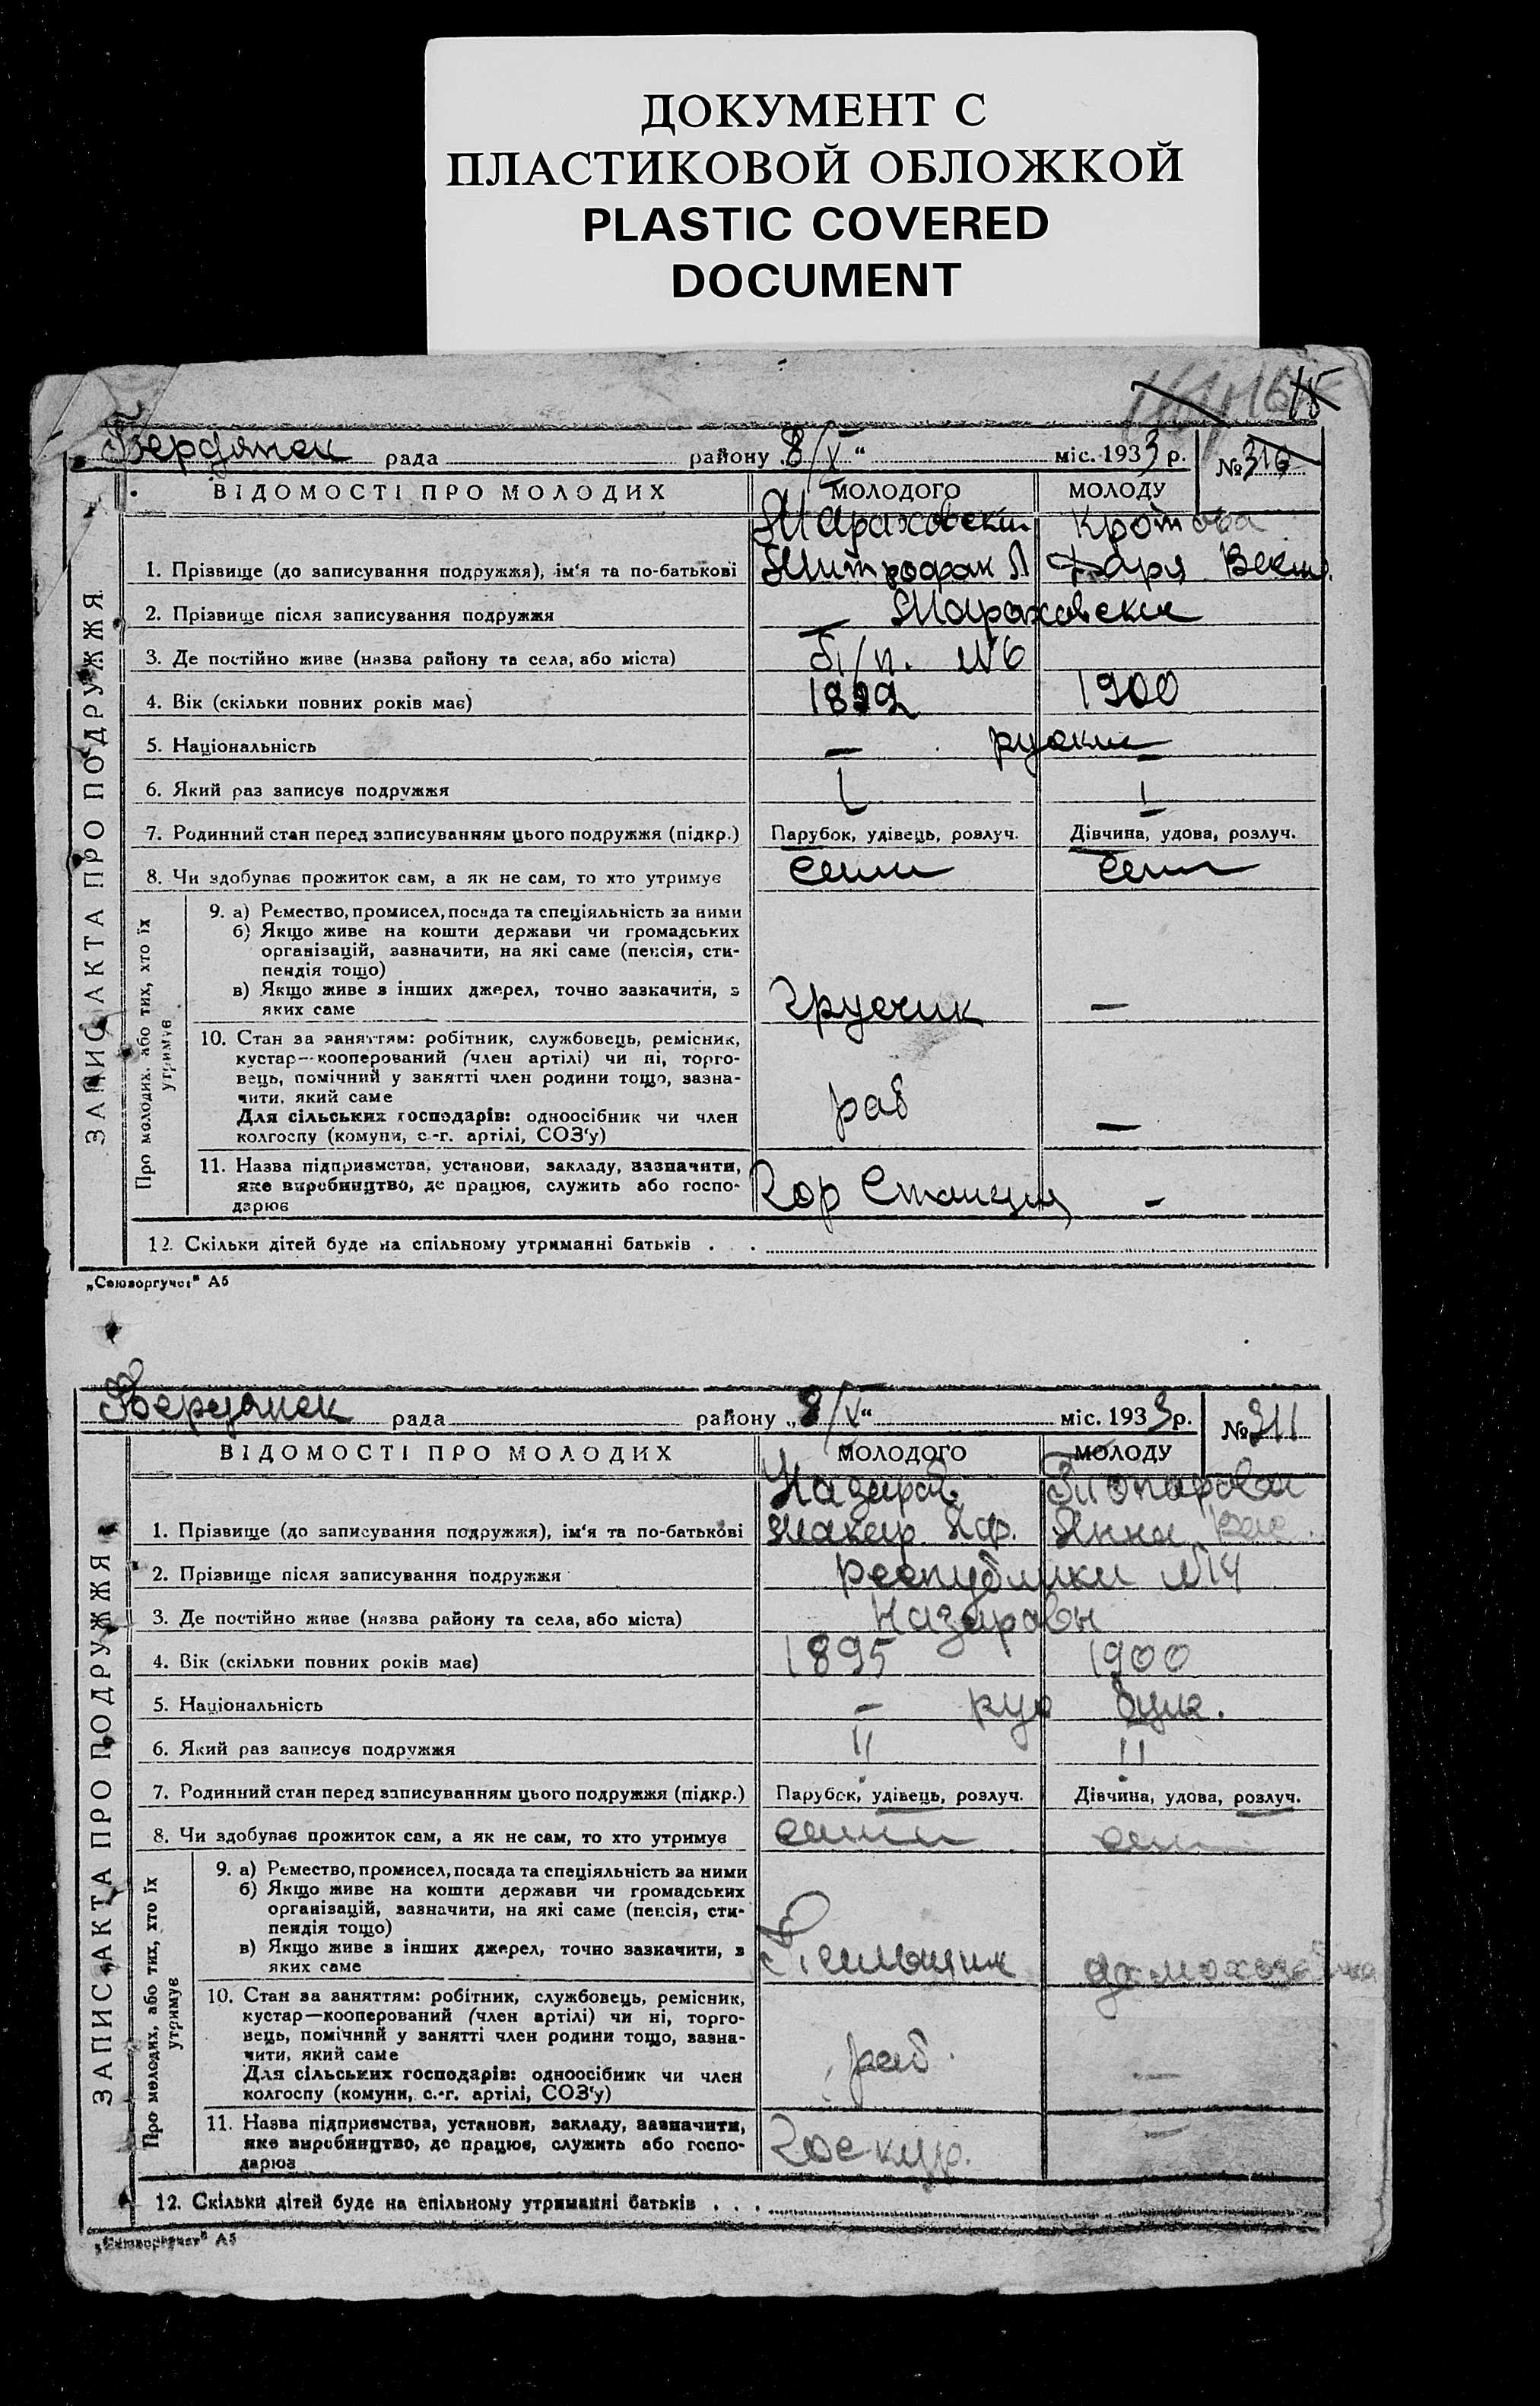 ДОКУМЕНТ С
ПЛАСТИКОВОЙ ОБЛОЖКОЙ
PLASTIC COVERED
DOCUMENT
Бердянск рада району 8/V “ міс. 1933 р. № 310
ВІДОМОСТІ ПРО МОЛОДИХ МОЛОДОГО МОЛОДУ
ЗАПИС АКТА ПРО ПОДРУЖЖЯ
Мараховский Кротова
1. Прізвище (до записування подружжя), ім‘я та по-батькові Митрофан Даря
2. Прізвище після записування подружжя — Мараховски
3. Де постійно живе (назва району та села, або міста) №6
4. Вік (скільки повних років має) 1899 1900
5. Національність — руские —
6. Який раз записує подружжя I I
7. Родинний стан перед записуванням цього подружжя (підкр.) Парубок, удівець, розлуч. Дівчина, удова, розлуч.
8. Чи здобуває прожиток сам, а як не сам, то хто утримує
Про молодих, або тих, хто їх утримує
9. а) Ремество, промисел, посада та спеціяльність за ними
б) Якщо живе на кошти держави чи громадських
організацій, зазначити, на які саме (пенсія, сти-
пендія тощо)
в) Якщо живе з інших джерел, точно зазначити, з
яких саме Грусчик —
10. Стан за заняттям: робітник, службовець, ремісник,
кустар—кооперований (член артілі) чи ні, торго-
вець, помічний у занятті член родини тощо, зазна-
чити, який саме
Для сільських господарів: одноосібник чи член
колгоспу (комуни, с.-г. артілі, СОЗ‘у) раб —
11. Назва підприємства, установи, закладу, зазначити,
яке виробництво, де працює, служить або госпо-
дарює Гор Станция —
12. Скільки дітей буде на спільному утриманні батьків . . .
„Союзоргучет“ А5
Бердянск рада району „8/V“ міс. 1933 р. № 311
ВІДОМОСТІ ПРО МОЛОДИХ МОЛОДОГО МОЛОДУ
ЗАПИС АКТА ПРО ПОДРУЖЖЯ
Назаров
1. Прізвище (до записування подружжя), ім‘я та по-батькові Макар Яф. Анна Вас.
2. Прізвище після записування подружжя Республики №14
3. Де постійно живе (назва району та села, або міста) Назаровы
4. Вік (скільки повних років має) 1895 1900
5. Національність — рус
6. Який раз записує подружжя II II
7. Родинний стан перед записуванням цього подружжя (підкр.) Парубок, удівець, розлуч. Дівчина, удова, розлуч.
8. Чи здобуває прожиток сам, а як не сам, то хто утримує
Про молодих, або тих, хто їх утримує
9. а) Ремество, промисел, посада та спеціяльність за ними
б) Якщо живе на кошти держави чи громадських
організацій, зазначити, на які саме (пенсія, сти-
пендія тощо)
в) Якщо живе з інших джерел, точно зазначити, з
яких саме домохозяйка
10. Стан за заняттям: робітник, службовець, ремісник,
кустар—кооперований (член артілі) чи ні, торго-
вець, помічний у занятті член родини тощо, зазна-
чити, який саме
Для сільських господарів: одноосібник чи член
колгоспу (комуни, с.-г. артілі, СОЗ‘у) раб. —
11. Назва підприємства, установи, закладу, зазначити,
яке виробництво, де працює, служить або госпо-
дарює Госкур. —
12. Скільки дітей буде на спільному утриманні батьків . . .
„Союзоргучет“ А5